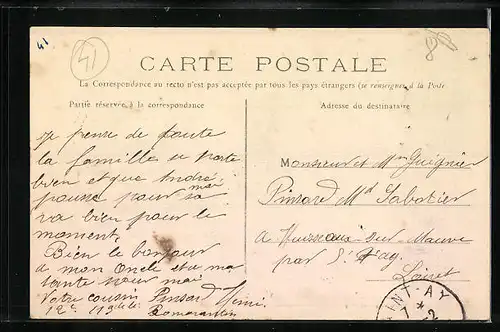 41
41
CARTE POSTALE
La Correspondance au recto n'est pas acceptée par tous les pays étrangers (se renseigner à la Poste
Partie réservée à la correspondance
Adresse du destinataire
Je pense de toute
la famille se porte
bien et que André
pousse pour moi
sa va bien pour le
moment,
Bien le bonjour
a mon Oncle et a ma
tante pour moi
Votre cousin Pinsard Henri
Romorantin
Monsieur et Mme Guignier
Pinsard Md Sabotier
a Huisseau-sur-Mauve
par St Ay
Loiret
SAINT-AY